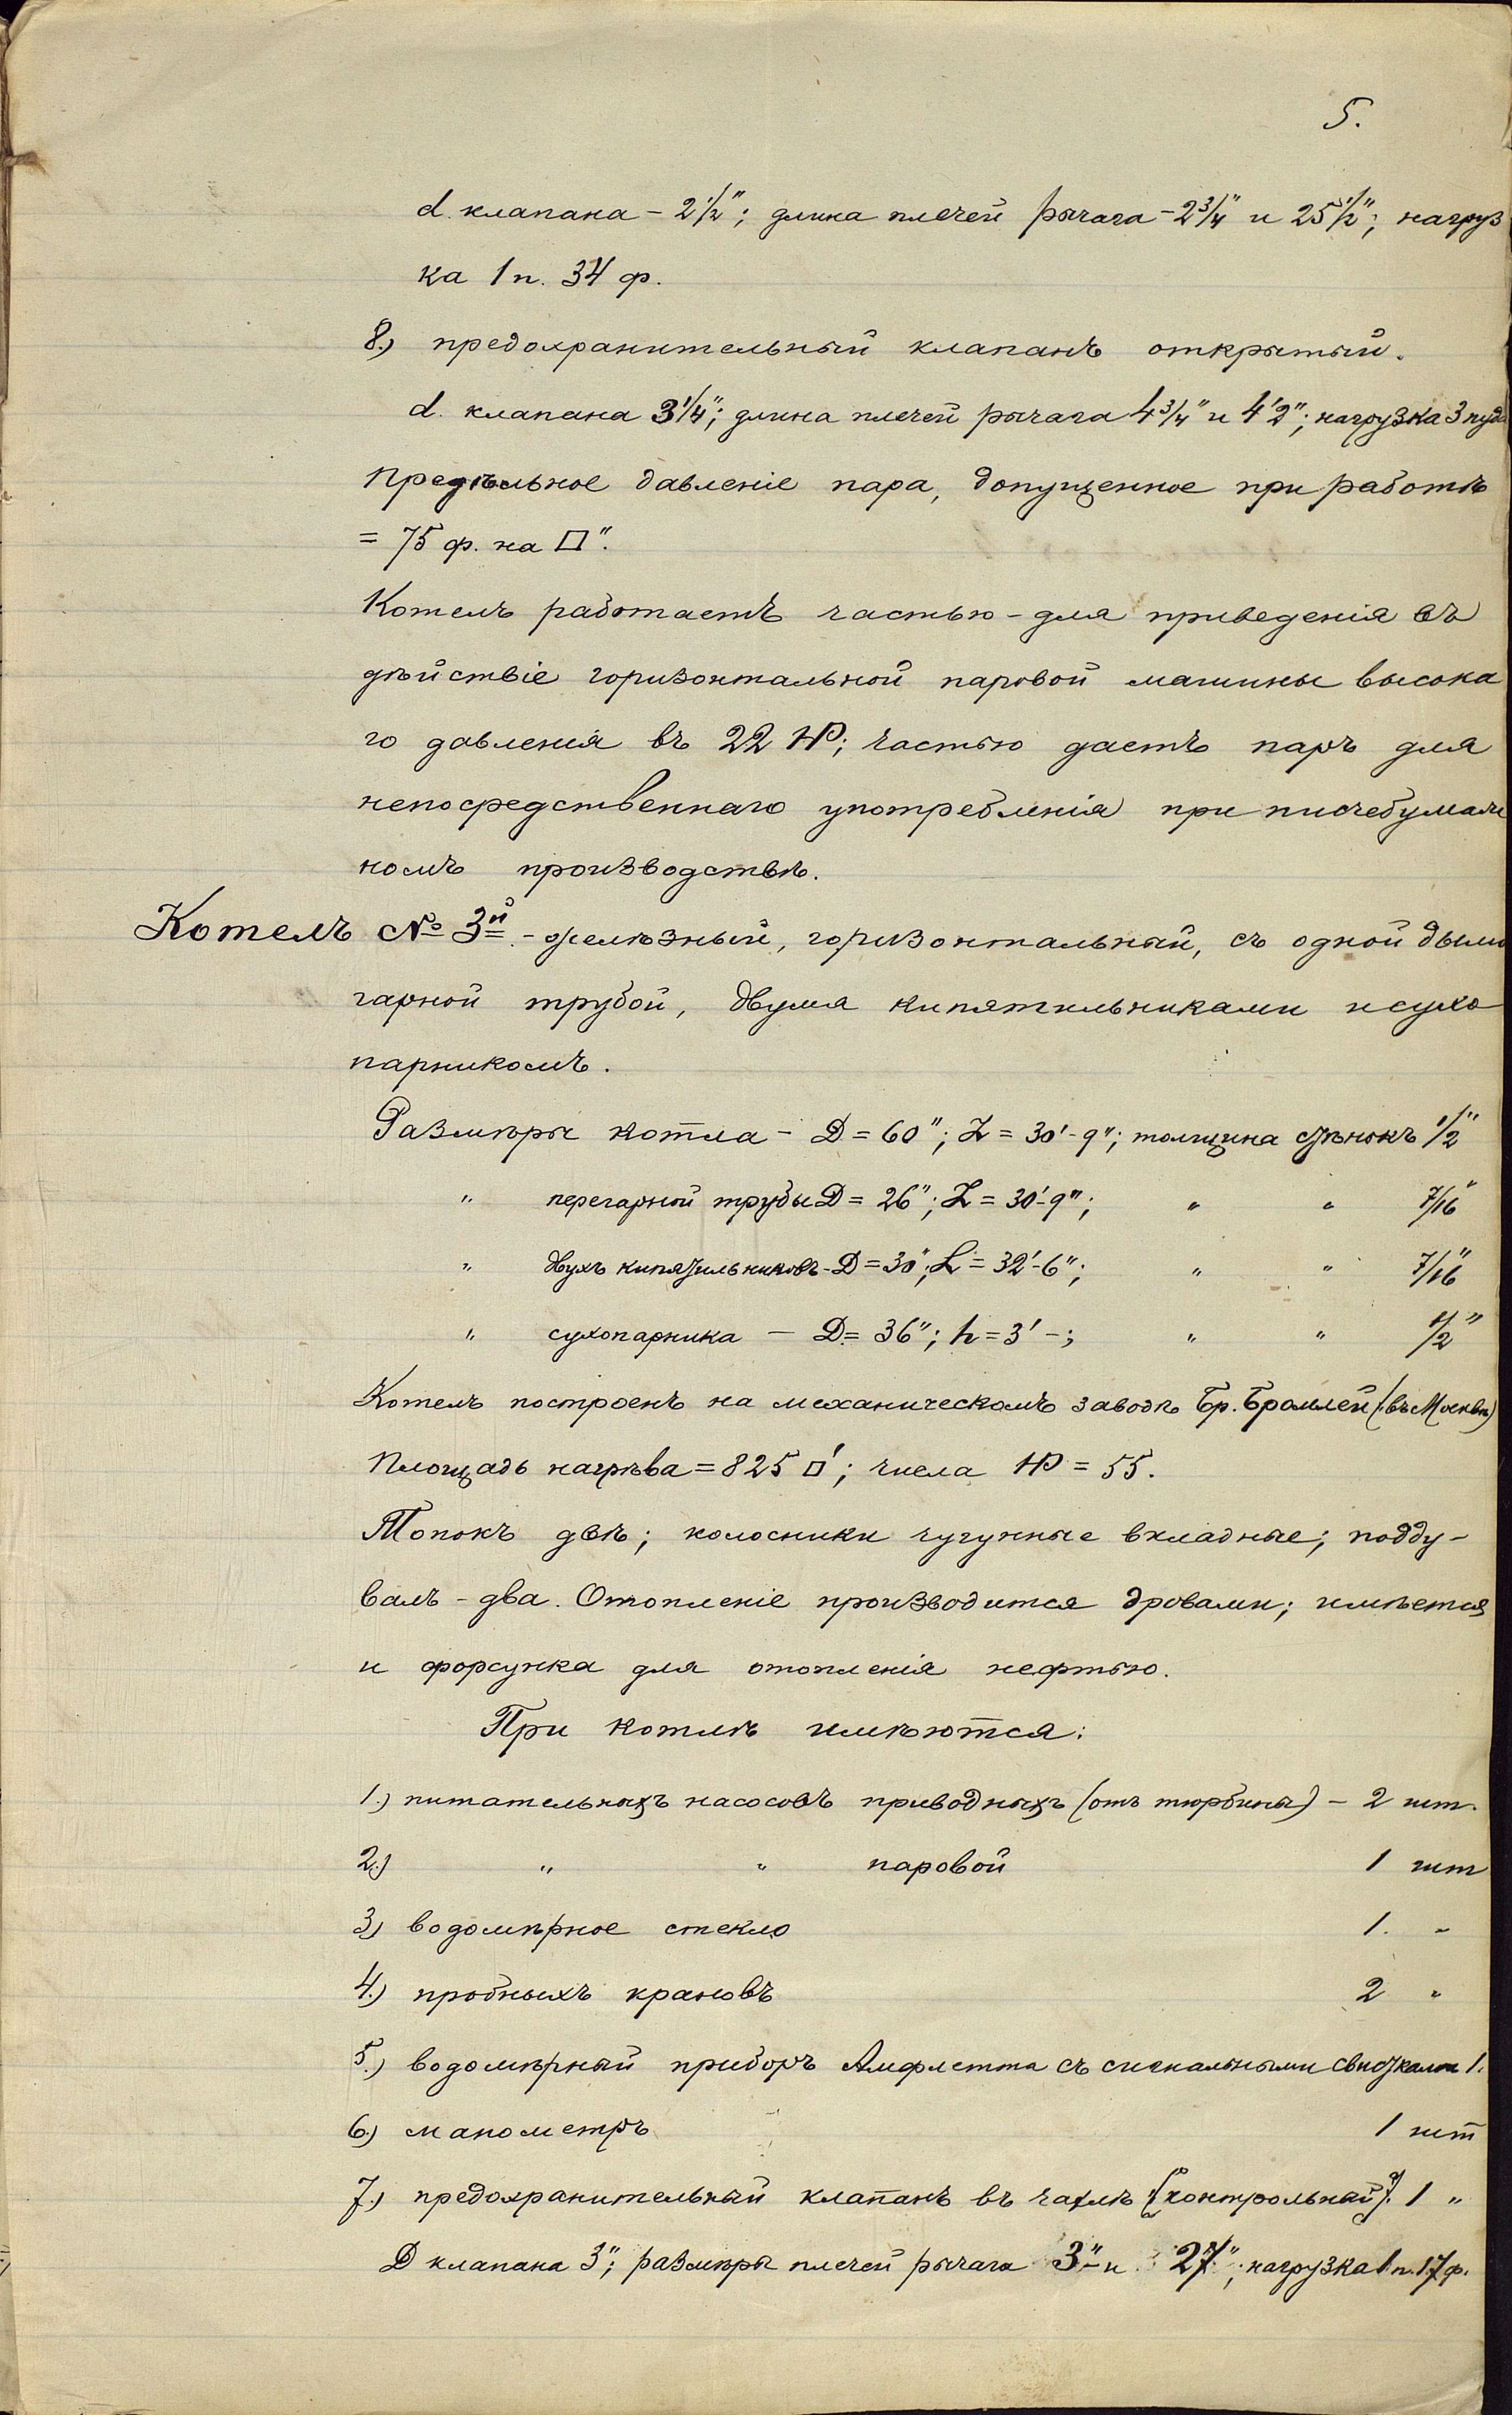 5.
d. клапана – 2 1/2"; длина плечей рычага – 2 3/4" и 25 1/2"; нагруз
ка 1 п. 34 ф.
8.) предохранительный клапанъ открытый.
d. клапана 3 1/4"; длина плечей рычага 4 3/4" и 4' 2"; нагрузка 3 пуд
Предѣльное давленіе пара, допущенное при работѣ
= 75 ф. на □".
Котелъ работаетъ частью – для приведенія въ
дѣйствіе горизонтальной паровой машины высока
го давленія въ 22 HP; частью даетъ паръ для
непосредственнаго употребленія при писчебумаж
номъ производствѣ.
Котелъ № 3й – желѣзный, горизонтальный, съ одной дымо
гарной трубой, двумя кипятильниками и сухо
парникомъ.
Размѣры котла – D = 60"; L = 30'-9"; толщина стѣнокъ 1/2"
" перегарной трубы D = 26"; L = 30'-9"; " " 7/16"
" двухъ кипятильниковъ – D = 30"; L = 32'-6"; " " 7/16"
" сухопарника – D = 36"; h = 3' –; " " 1/2"
Котелъ построенъ на механическомъ заводѣ Бр. Бромлей (въ Москвѣ)
Площадь нагрѣва = 825 □'; числа HP = 55.
Топокъ двѣ; колосники чугунные вкладные; подду-
валъ – два. Отопленіе производится дровами; имѣется
и форсунка для отопленія нефтью.
При котлѣ имѣются:
1.) питательныхъ насосовъ приводныхъ (отъ тюрбины) – 2 шт.
2.) " " паровой 1 шт
3.) водомѣрное стекло 1. "
4.) пробныхъ крановъ 2 "
5.) водомѣрный приборъ Амфлетта съ сигнальными свистками 1.
6.) манометръ 1 шт
7.) предохранительный клапанъ въ чахлѣ (контрольный). 1 "
D клапана 3"; размѣры плечей рычага 3" и 27"; нагрузка 1 п. 17 ф.